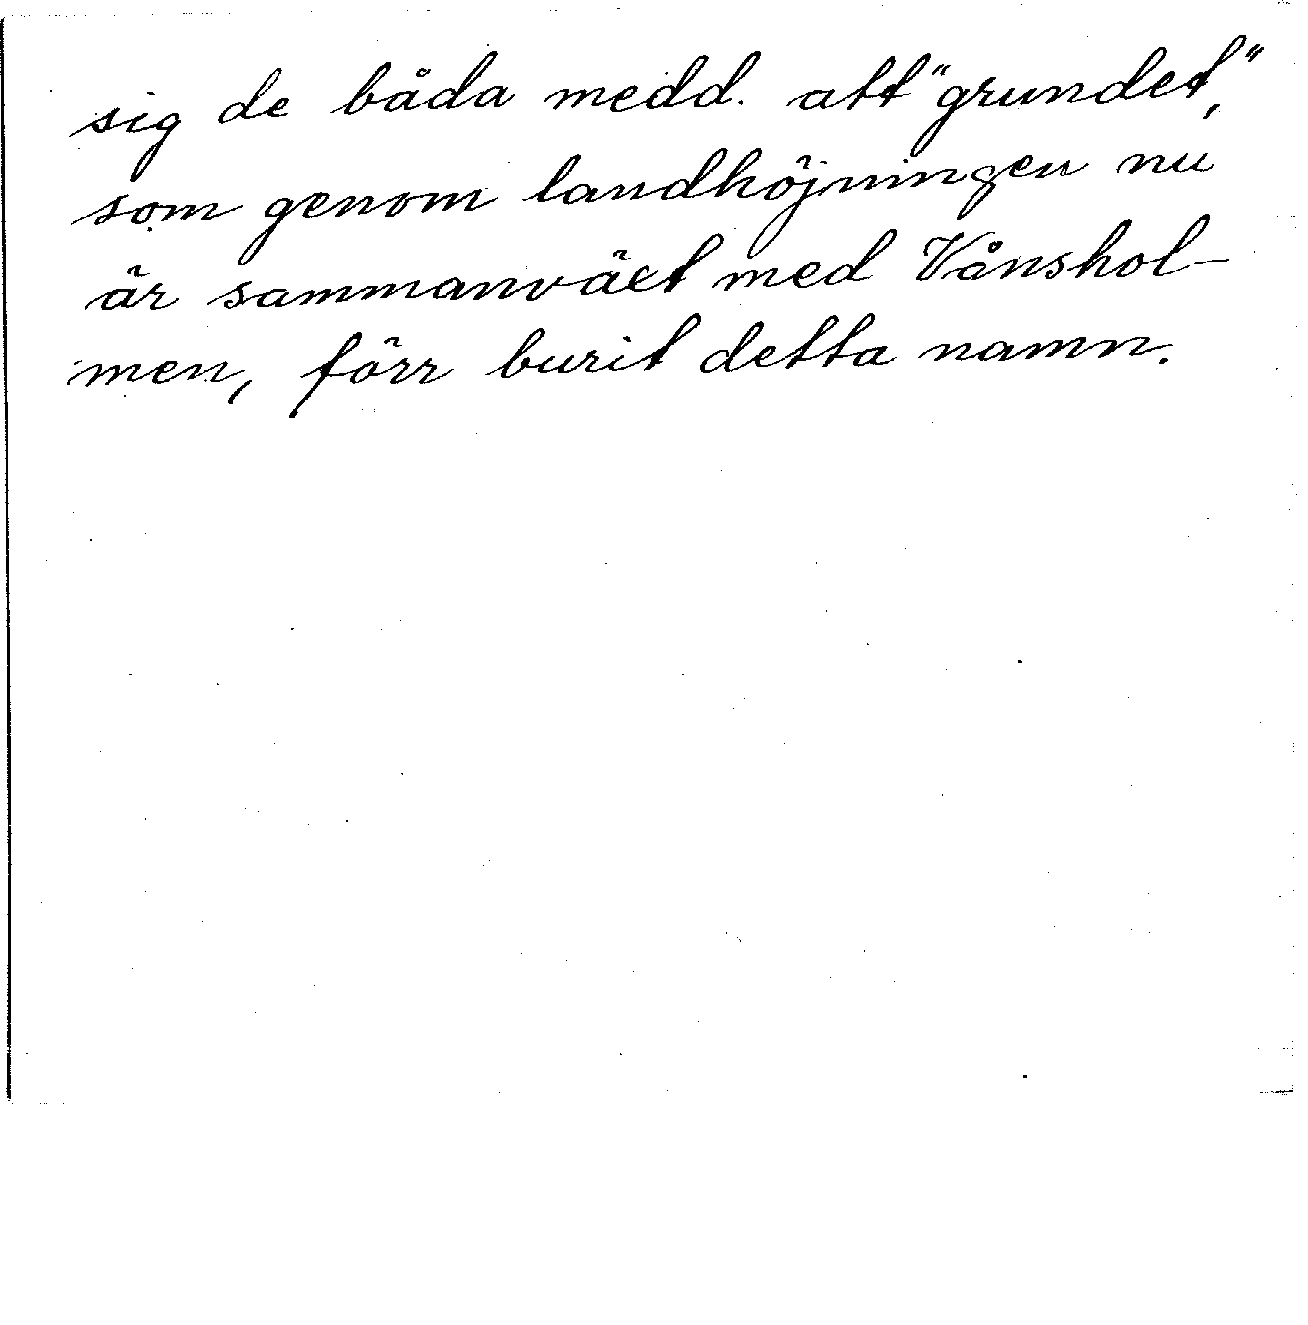 sig de båda medd. att "grundet,"
som genom landhöjningen nu
är sammanväxt med Vånshol-
men, förr burit detta namn.